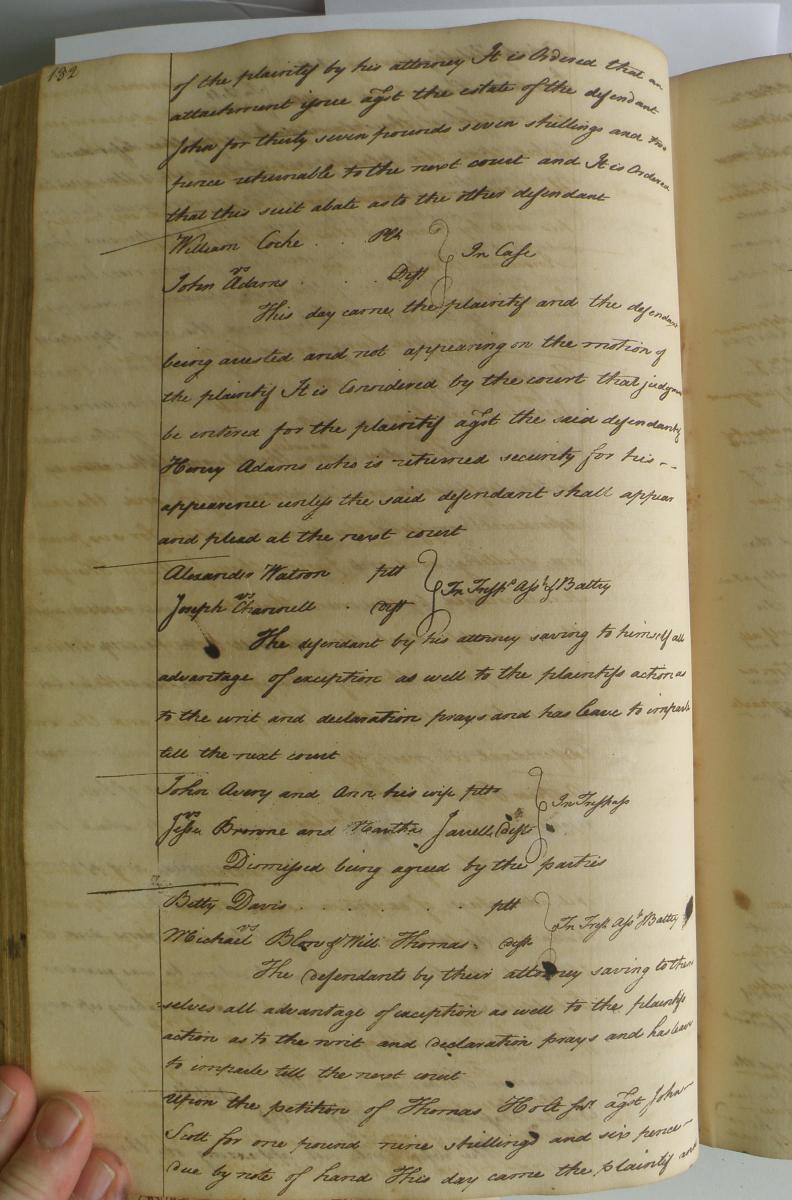 132
of the plaintif by his attorney It is Ordered that an
attachment issue agst the estate of the defendant
John for thirty seven pounds seven shillings and two
pence returnable to the next court and It is Ordered
that this suit abate as to the other defendant
William Cocke . . Plt } In Case
vs
John Adams . . . Deft
This day came the plaintif and the defendant
being arrested and not appearing on the motion of
the plaintif It is Considered by the court that judgm
be entered for the plaintif agst the said defendant &
Henry Adams who is returned security for his --
appearence unless the said defendant shall appear
and plead at the next court
Alexander Watson plt } In Tresps Asst & Battry
vs
Joseph Channell . deft
The defendant by his attorney saving to himself all
advantage of exception as well to the plaintifs action as
to the writ and declaration prays and has leave to imparle
till the next court
John Avery and Ann his wife plts } In Trespass
vs
Jesse Browne and Martha Jarrell defts
Dismissed being agreed by the parties
Betty Davis . . . . . . plt } In Tresps Asst & Battry
vs
Michael Blow & Will Thomas . defts
The defendants by their attorney saving to them
selves all advantage of exception as well to the plaintifs
action as to the writ and declaration prays and has leave
to imparle till the next court
Upon the petition of Thomas Holt Junr agst John
Scott for one pound nine shillings and six pence
due by note of hand This day came the plaintif and